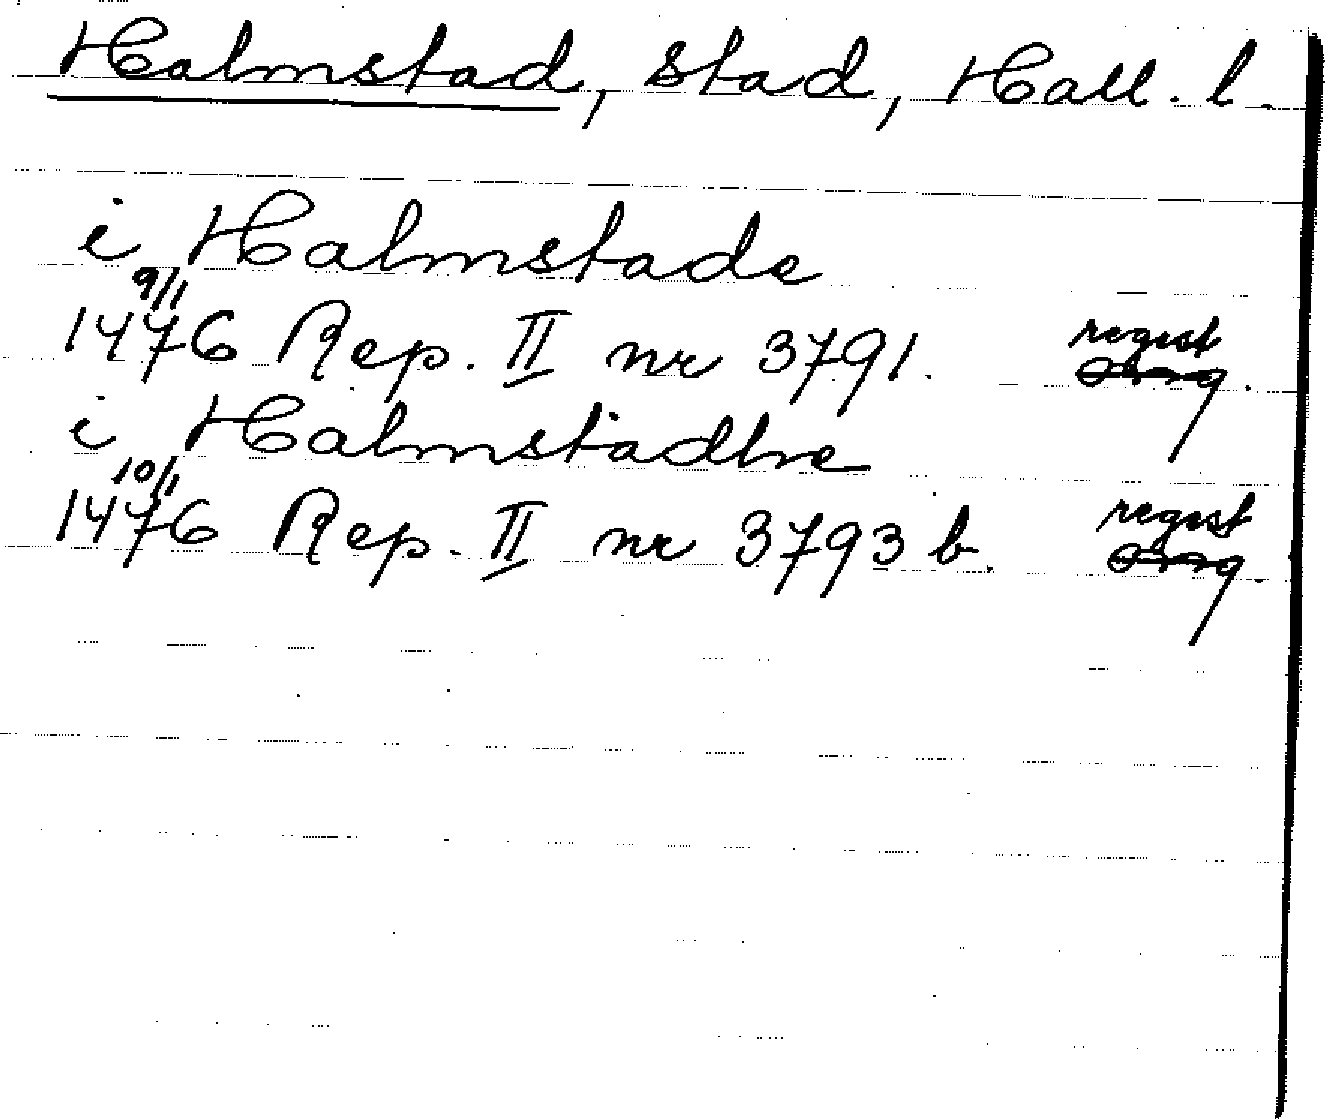 Halmstad, stad, Hall. l.
i Halmstade
9/1
1476 Rep. II nr 3791. regest
i Halmstadhe
10/1
1476 Rep. II nr 3793 b. regest